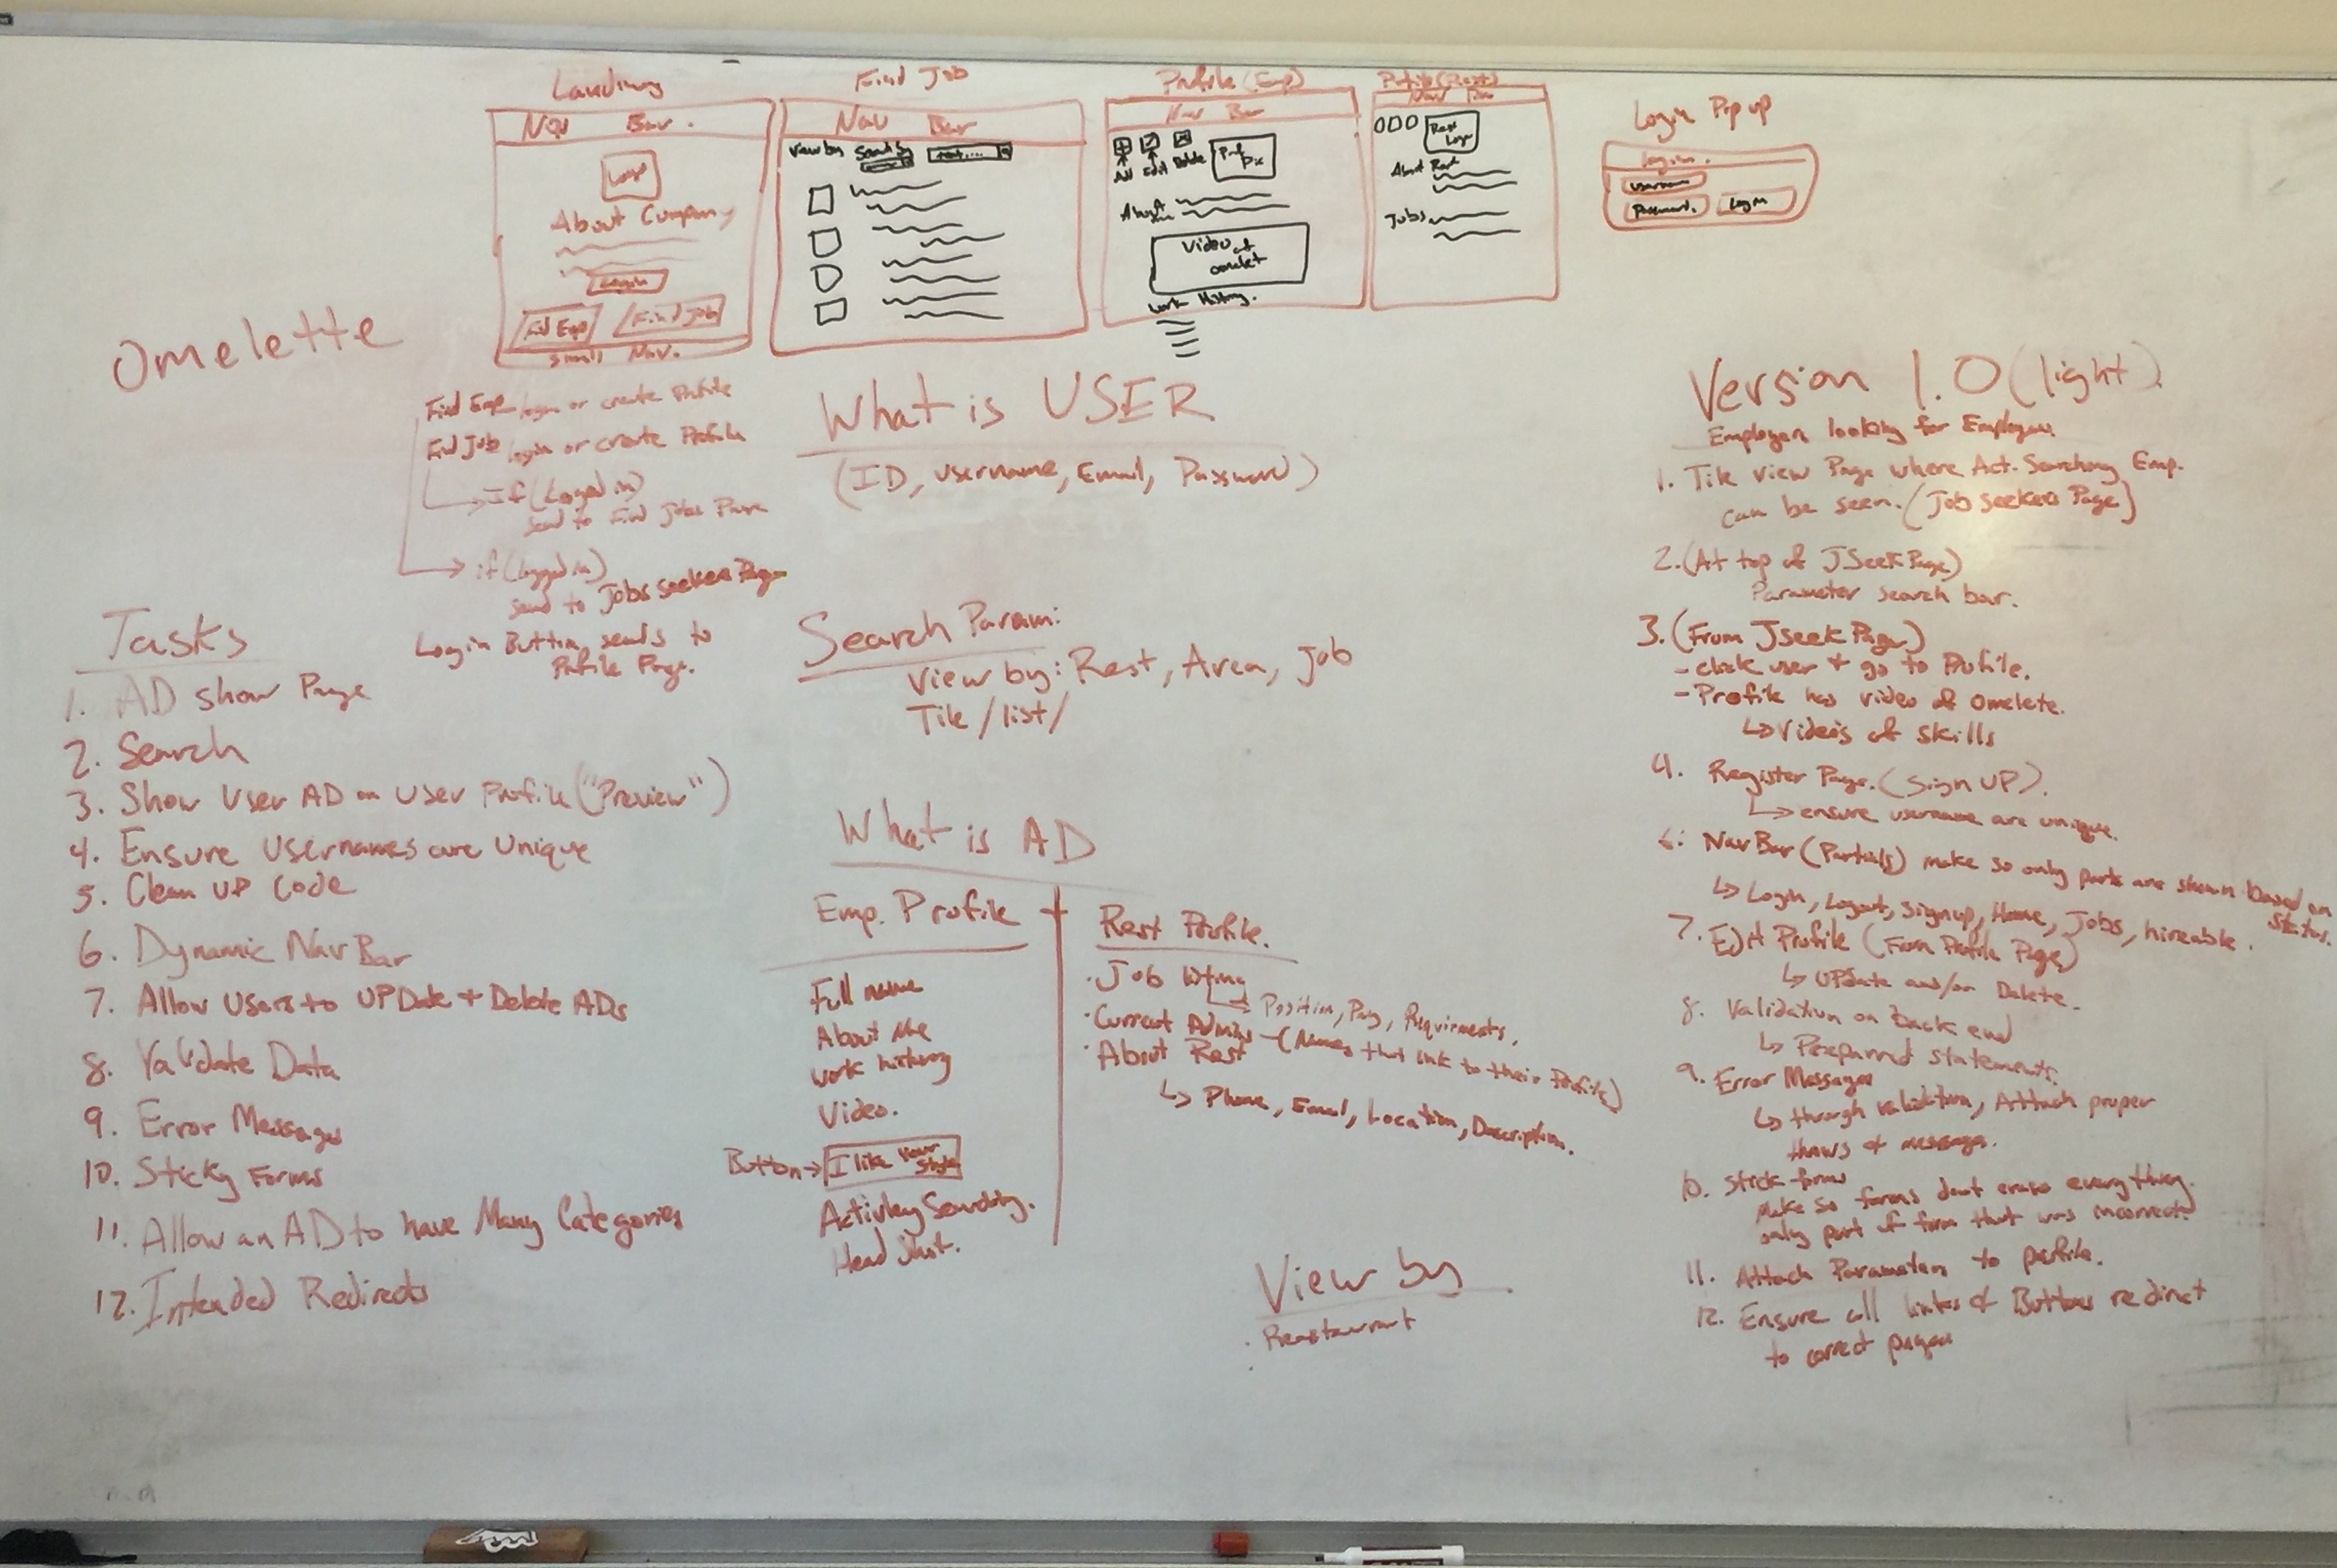 Landing
Nav Bar.
Logo
About Company
Login
Find Emp
Find Job
Small Nav.
Find Job
Nav Bar
View by
Search by
Profile (Emp)
Nav Bar
Add Edit Delete
Prof Pix
About
Video of
omelet
Work History.
Profile (Rest)
Nav Bar
Rest
Logo
About Rest
Jobs
Login Pop up
login.
username
Password.
Login
Omelette
Find Emp login or create Profile
Find Job login or create Profile
If (Logged in)
send to Find Jobs Page
if (logged in)
send to Jobs seekers Page
Login Button sends to
Profile Page.
Tasks
1. AD show Page
2. Search
3. Show User AD on User Profile ("Preview")
4. Ensure Usernames are Unique
5. Clean UP Code
6. Dynamic Nav Bar
7. Allow Users to UPDate + Delete ADs
8. Validate Data
9. Error Messages
10. Sticky Forms
11. Allow an AD to have Many Categories
12. Intended Redirects
What is USER
(ID, Username, Email, Password)
Search Param:
View by: Rest, Area, Job
Tile / list /
What is AD
Emp. Profile +
Full name
About Me
work history
Video.
Button → I like Your Style
Activley Searching.
Head Shot.
Rest Profile.
· Job listing
Position, Pay, Requirments.
· Current Admins - (Names that link to their Profile)
· About Rest
↳ Phone, Email, Location, Description.
View by
· Reastaurant
Version 1.0 (light)
Employers looking for Employees
1. Tile view Page where Act. Searching Emp.
can be seen. (Job seekers Page)
2. (At top of JSeek Page)
Parameter search bar.
3. (From Jseek Page)
- click user + go to Profile.
- Profile has video of omelete.
↳ Videos of skills
4. Register Page. (Sign UP).
↳ ensure username are unique.
6. Nav Bar (Partials) make so only parts are shown based on
status.
↳ Login, Logout, Signup, Home, Jobs, hireable.
7. Edit Profile (From Profile Page)
↳ UPdate and/or Delete.
8. Validation on back end
↳ Prepared statements.
9. Error Messages
↳ through validation, Attach proper
throws & message.
10. Stick forms
Make so forms dont erase everything.
only part of form that was incorrect.
11. Attach Parameters to profile.
12. Ensure all links & Buttons redirect
to correct pages